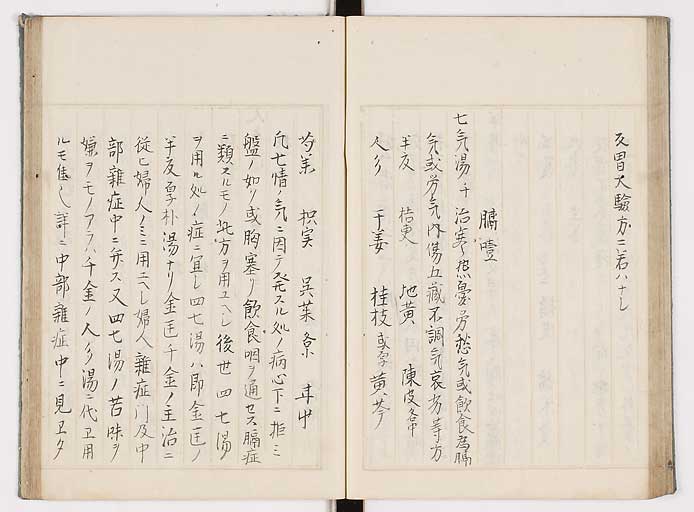 反胃大驗方ニ若ハナシ
膈噎
七気湯千 治寒気憂労愁気或飲食為膈
気或労気内傷五蔵不調気衰少等方
半夏 桔更 地黄 陳皮各中
人参 干姜 桂枝 黄芩
芍薬 枳実 呉茱各小 甘中
凡七情ノ気ニ因テ発スル処ノ病心下ニ拒ミ
盤ノ如ク或胸塞リ飲食咽ヲ通セス膈症
ニ類スルモノ此方ヲ用ユヘシ後世四七湯
ヲ用ル処ノ症ニ宜シ四七湯ハ即金匱ノ
半夏厚朴湯ナリ金匱千金ノ主治ニ
従ヒ婦人ノミニ用ユヘシ婦人雜症門及中
部雜症中ニ弁ス又四七湯ノ苦味ヲ
嫌ヲモノアラハ千金ノ人参湯ニ代エ用
ルモ佳シ詳ニ中部雜症中ニ見エタ